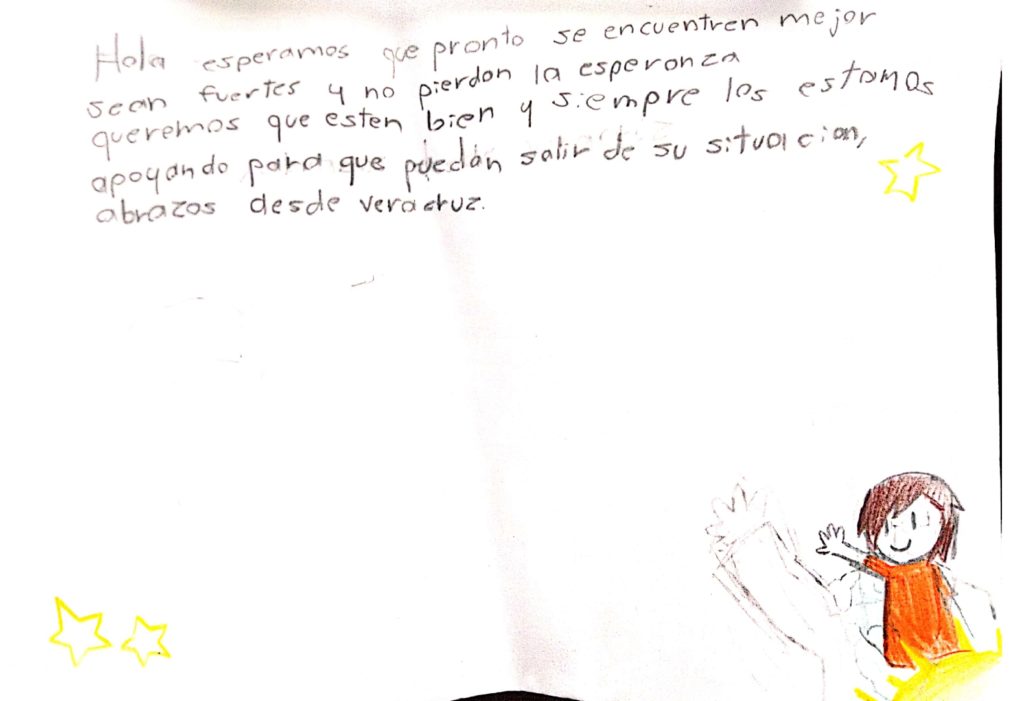 Hola esperamos que pronto se encuentren mejor
sean fuertes y no pierdan la esperanza
queremos que esten bien y siempre los estamos
apoyando para que puedan salir de su situacion,
abrazos desde veracruz.